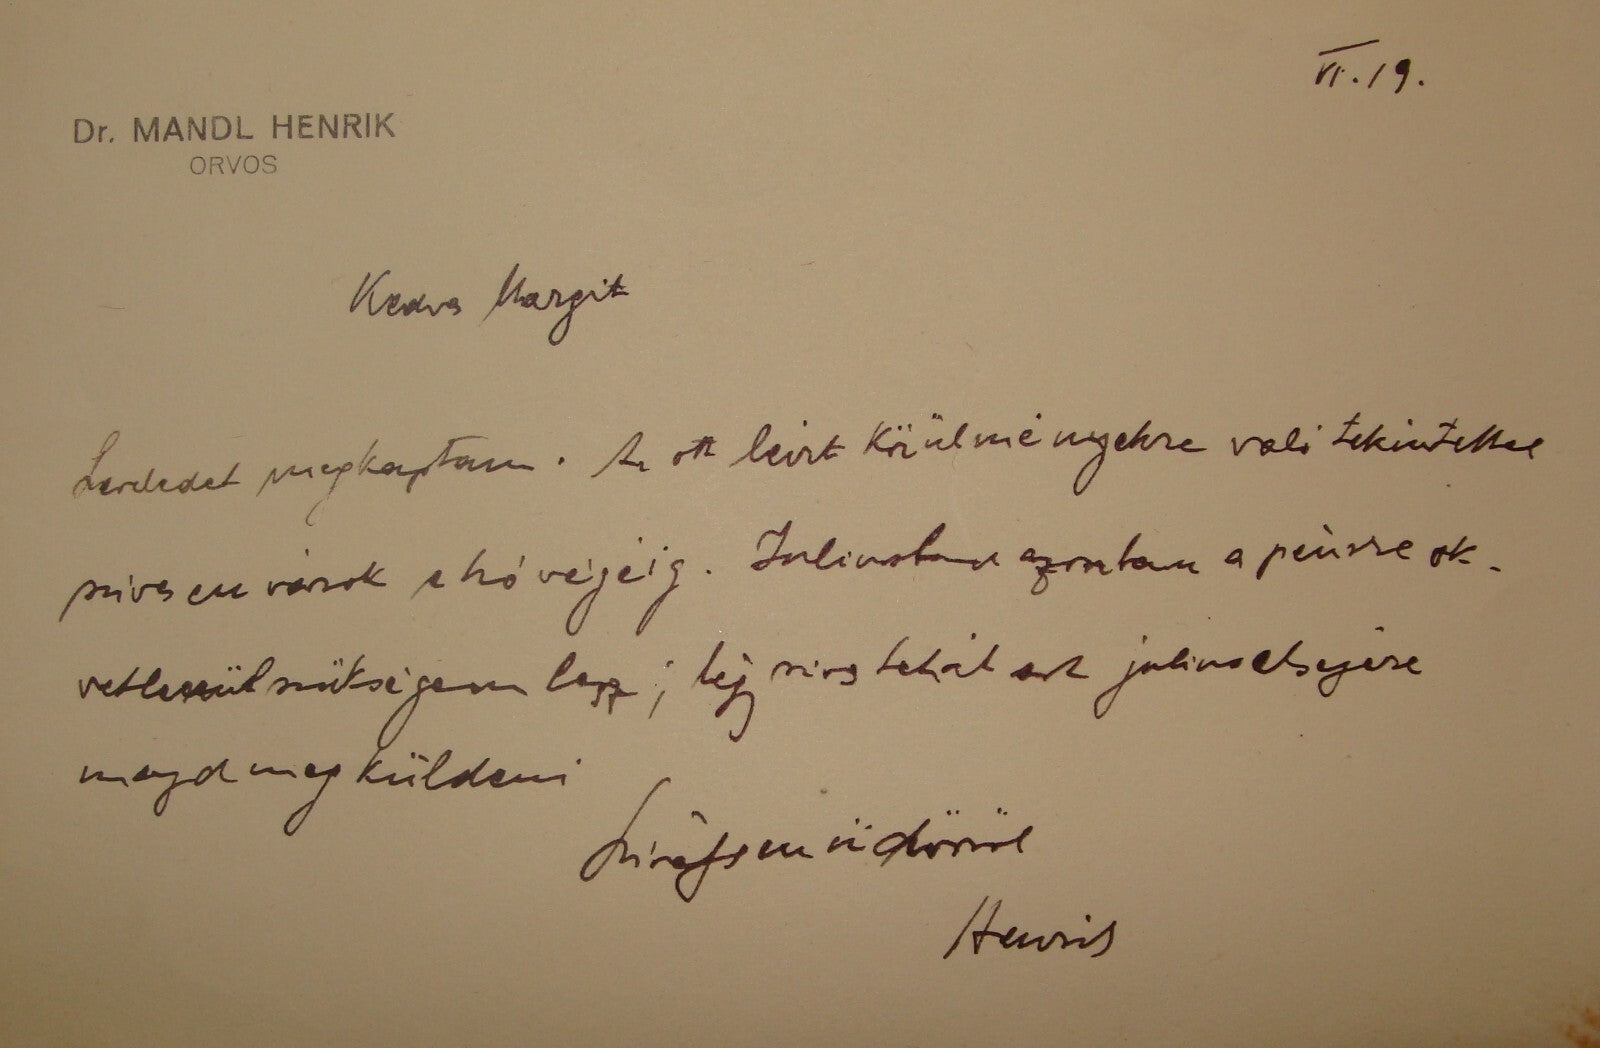 VI.19.
Dr. MANDL HENRIK
ORVOS
Kedves Margit
Leveledet megkaptam. Az ott leirt körülményekre való tekintettel
szivesen várok e hó végéig. Juliusban azonban a pénzre ok-
vetlenül szükségem lesz; légy szives tehát azt julius elsejére
majd megküldeni
Szivélyesen üdvözöl
Henrik